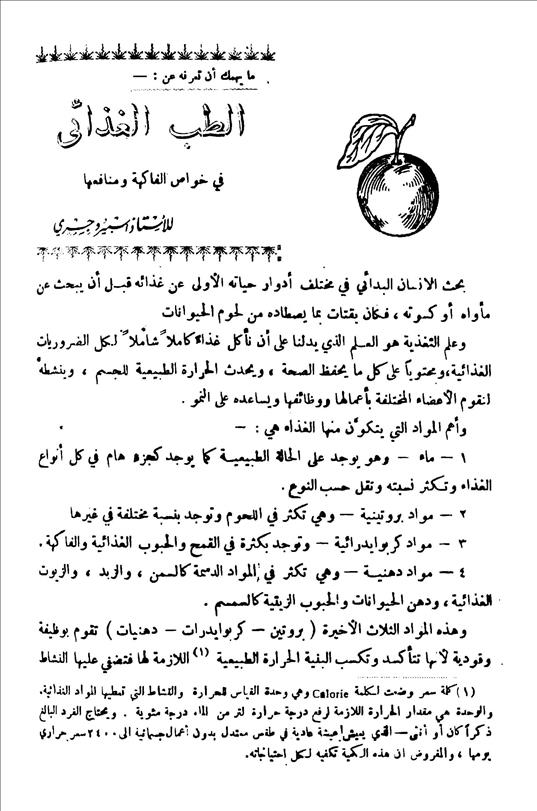 ما يهمك أن تعرفه عن : —
الطب الغذائي
في خواص الفاكهة ومنافعها
للأستاذ اسبيرو جسري
بحث الانسان البدائي في مختلف أدوار حياته الأولى عن غذائه قبل أن يبحث عن
مأواه أو كسوته ، فكان يقتات بما يصطاده من لحوم الحيوانات
وعلم التغذية هو العلم الذي يدلنا على أن نأكل غذاءً كاملاً شاملاً لكل الضروريات
الغذائية، ومحتوياً على كل ما يحفظ الصحة ، ويحدث الحرارة الطبيعية للجسم ، وينشطه
لتقوم الأعضاء المختلفة بأعمالها ووظائفها ويساعده على النمو .
وأهم المواد التي يتكوَّن منها الغذاء هي : —
١ — ماء — وهو يوجد على الحالة الطبيعية كما يوجد كجزء هام في كل أنواع
الغذاء وتكثر نسبته وتقل حسب النوع .
٢ — مواد بروتينية — وهي تكثر في اللحوم وتوجد بنسبة مختلفة في غيرها
٣ — مواد كربوايدرائية — وتوجد بكثرة في القمح والحبوب الغذائية والفاكهة .
٤ — مواد دهنية — وهي تكثر في المواد الدسمة كالسمن ، والزبد ، والزيوت
الغذائية ، ودهن الحيوانات والحبوب الزيقية كالسمسم .
وهذه المواد الثلاث الأخيرة ( بروتين — كربوايدرات — دهنيات ) تقوم بوظيفة
وقودية لأنها تتأكسد وتكسب البنية الحرارة الطبيعية (١) اللازمة لها فتضفي عليها النشاط
(١) كلة سعر وضعت لكلمة Calorie وهي وحدة القياس للحرارة والنشاط التي تعطيها المواد الغذائية.
والوحدة هي مقدار الحرارة اللازمة لرفع درجة حرارة لتر من الماء درجة مئوية . ويحتاج الفرد البالغ
ذكراً كان أو أنثى — الذي يعيش عيشة عادية في طقس معتدل بدون أعمال جسمانية الى ٢٤٠٠ سعر حراري
يومها ، والمفروض ان هذه الكمية تكفيه لكل احتياجاته.